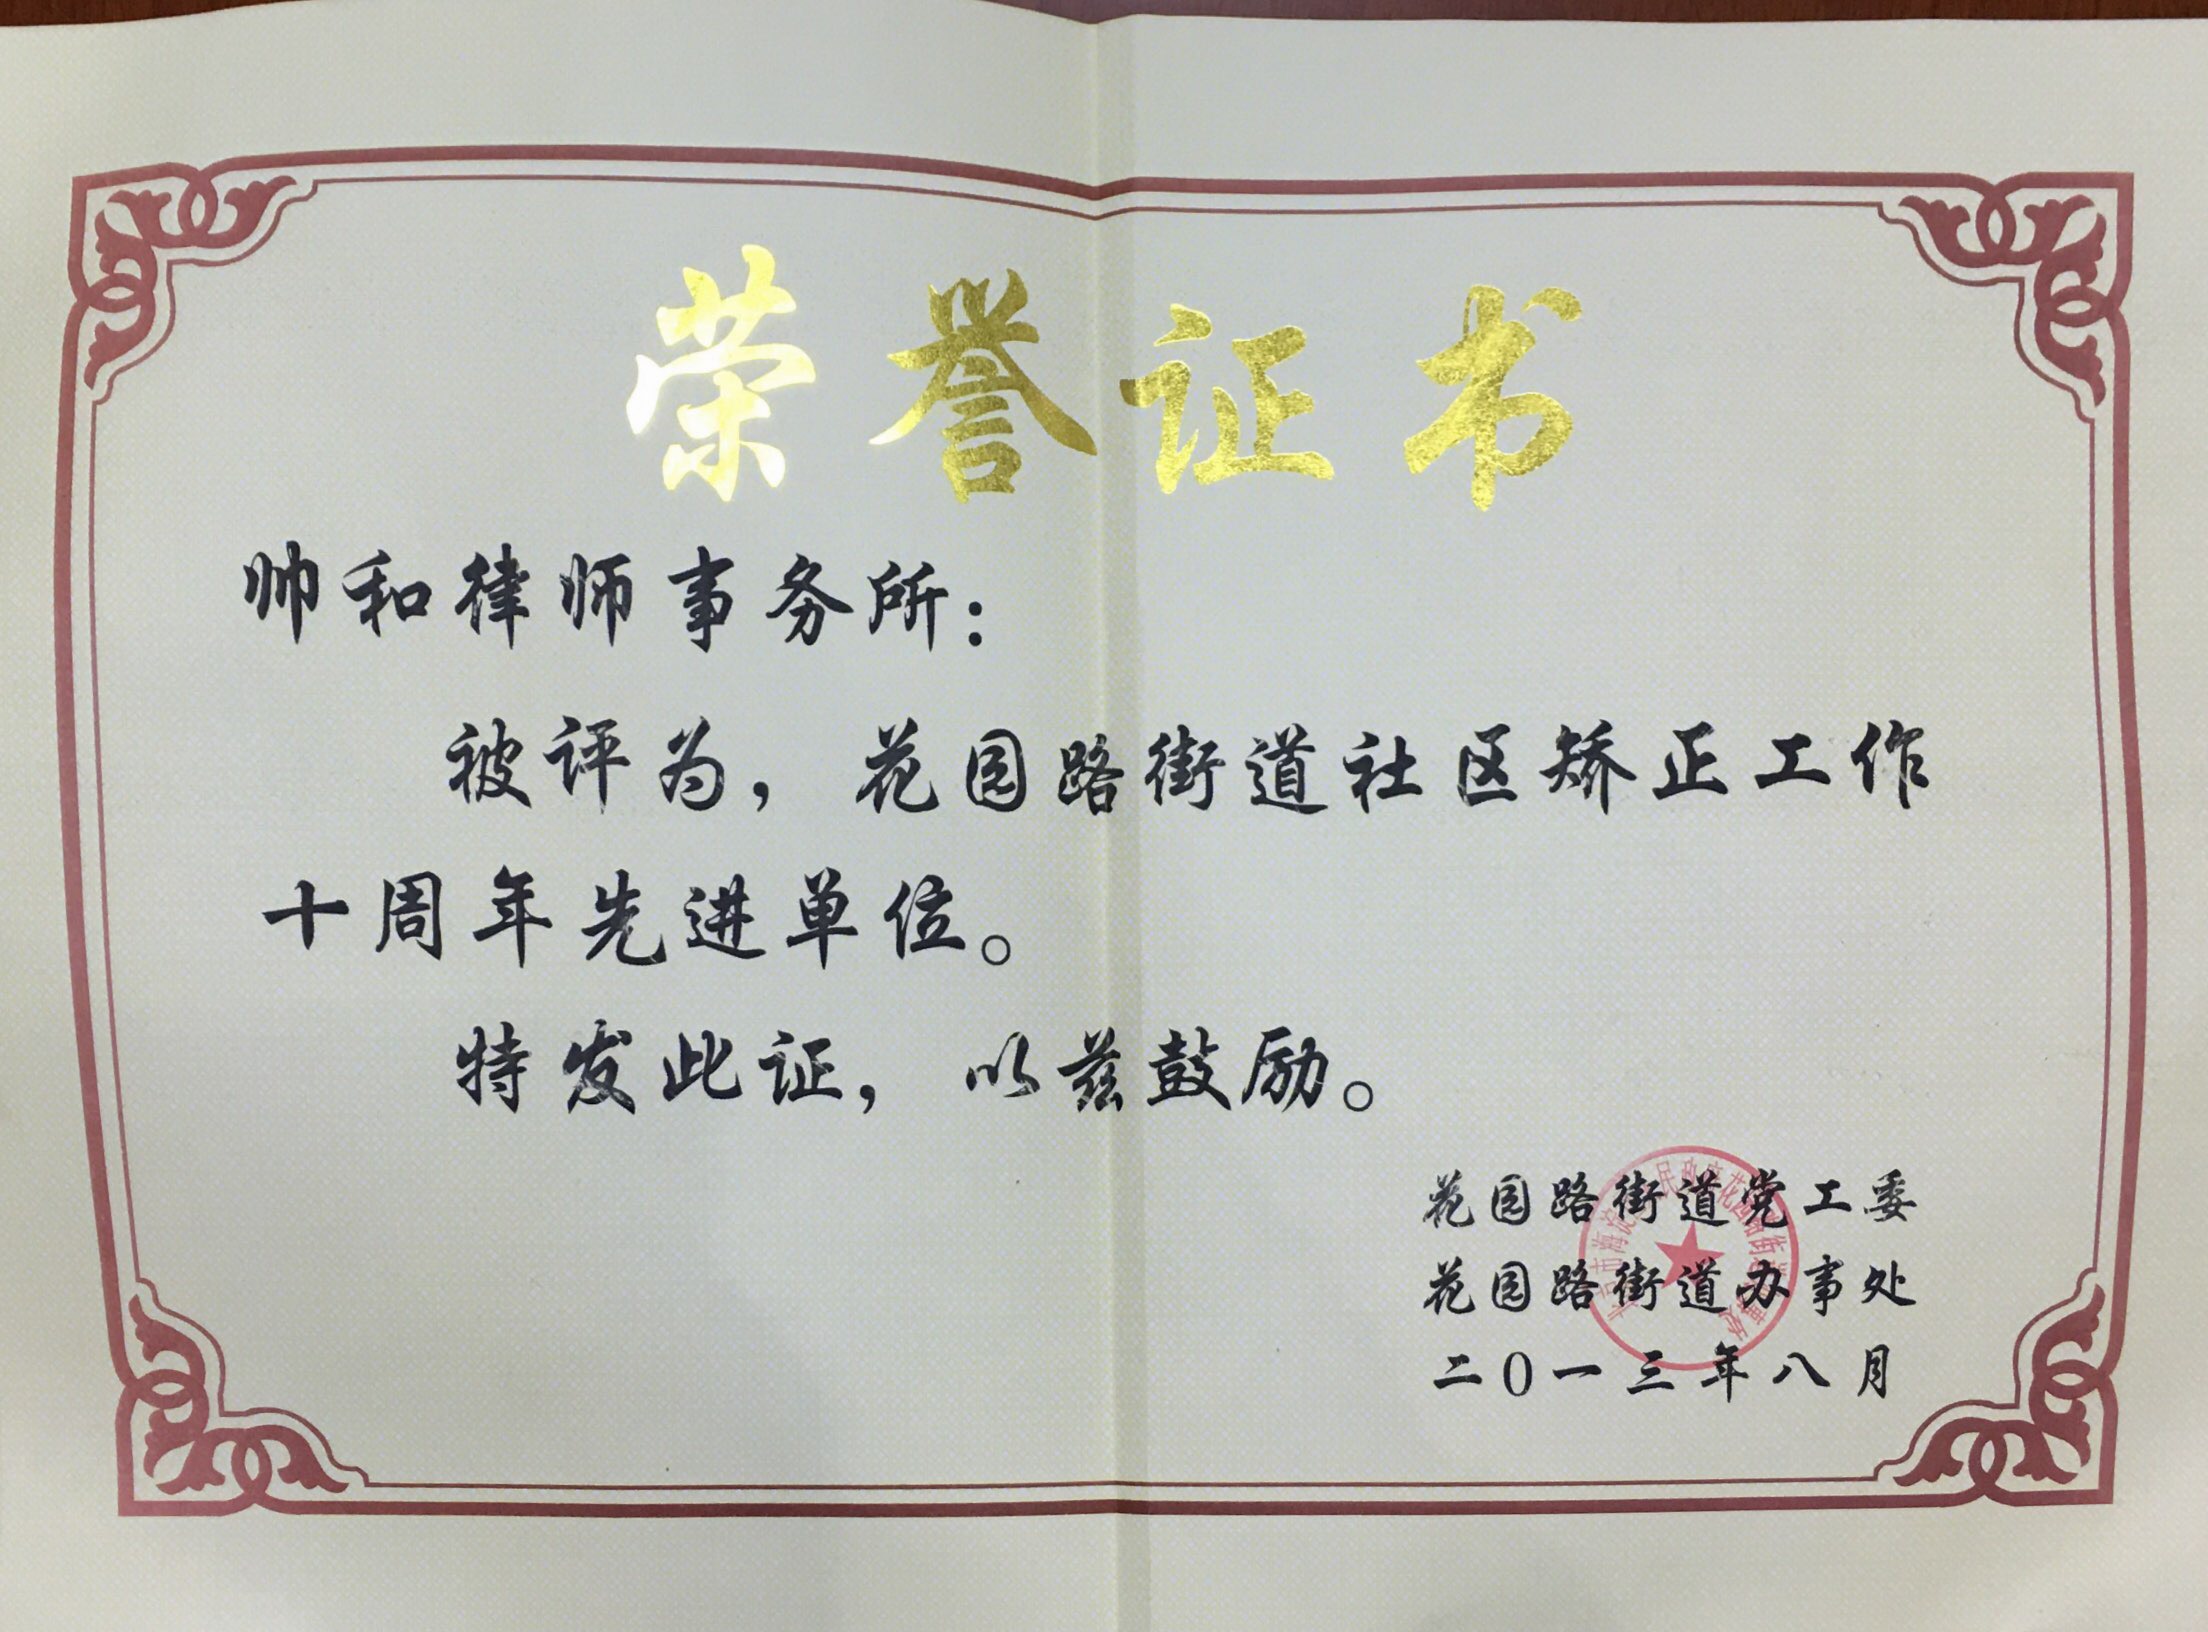 荣誉证书
帅和律师事务所：
被评为，花园路街道社区矫正工作
十周年先进单位。
特发此证，以兹鼓励。
花园路街道党工委
花园路街道办事处
二0一三年八月